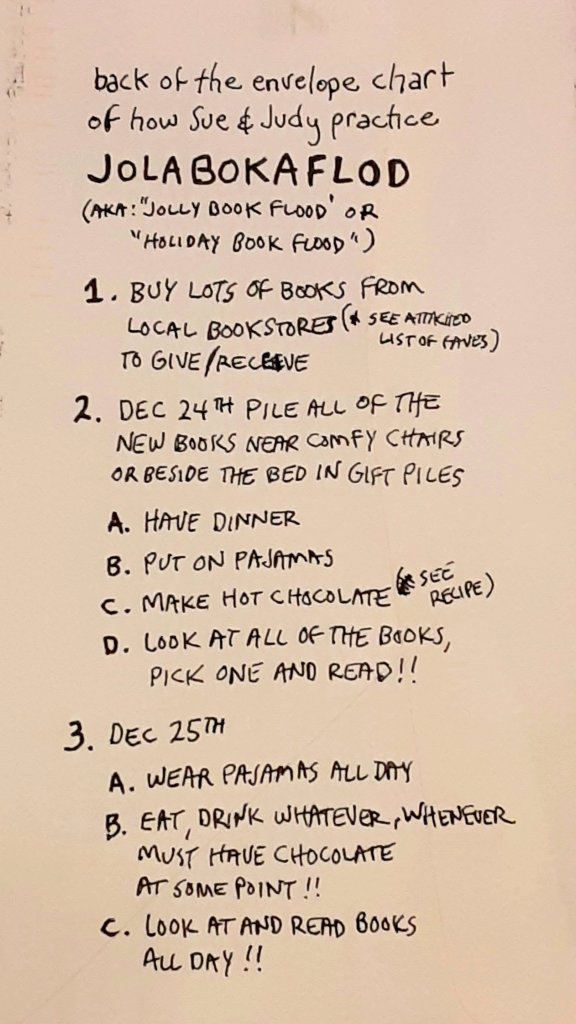 back of the envelope chart
of how Sue & Judy practice
JOLABOKAFLOD
(AKA: "JOLLY BOOK FLOOD' OR
"HOLIDAY BOOK FLOOD")
1. BUY LOTS OF BOOKS FROM
LOCAL BOOKSTORES (* SEE ATTACHED
LIST OF FAVES)
TO GIVE/RECEIVE
2. DEC 24TH PILE ALL OF THE
NEW BOOKS NEAR COMFY CHAIRS
OR BESIDE THE BED IN GIFT PILES
A. HAVE DINNER
B. PUT ON PAJAMAS
C. MAKE HOT CHOCOLATE (* SEE
RECIPE)
D. LOOK AT ALL OF THE BOOKS,
PICK ONE AND READ!!
3. DEC 25TH
A. WEAR PAJAMAS ALL DAY
B. EAT, DRINK WHATEVER, WHENEVER
MUST HAVE CHOCOLATE
AT SOME POINT!!
C. LOOK AT AND READ BOOKS
ALL DAY!!